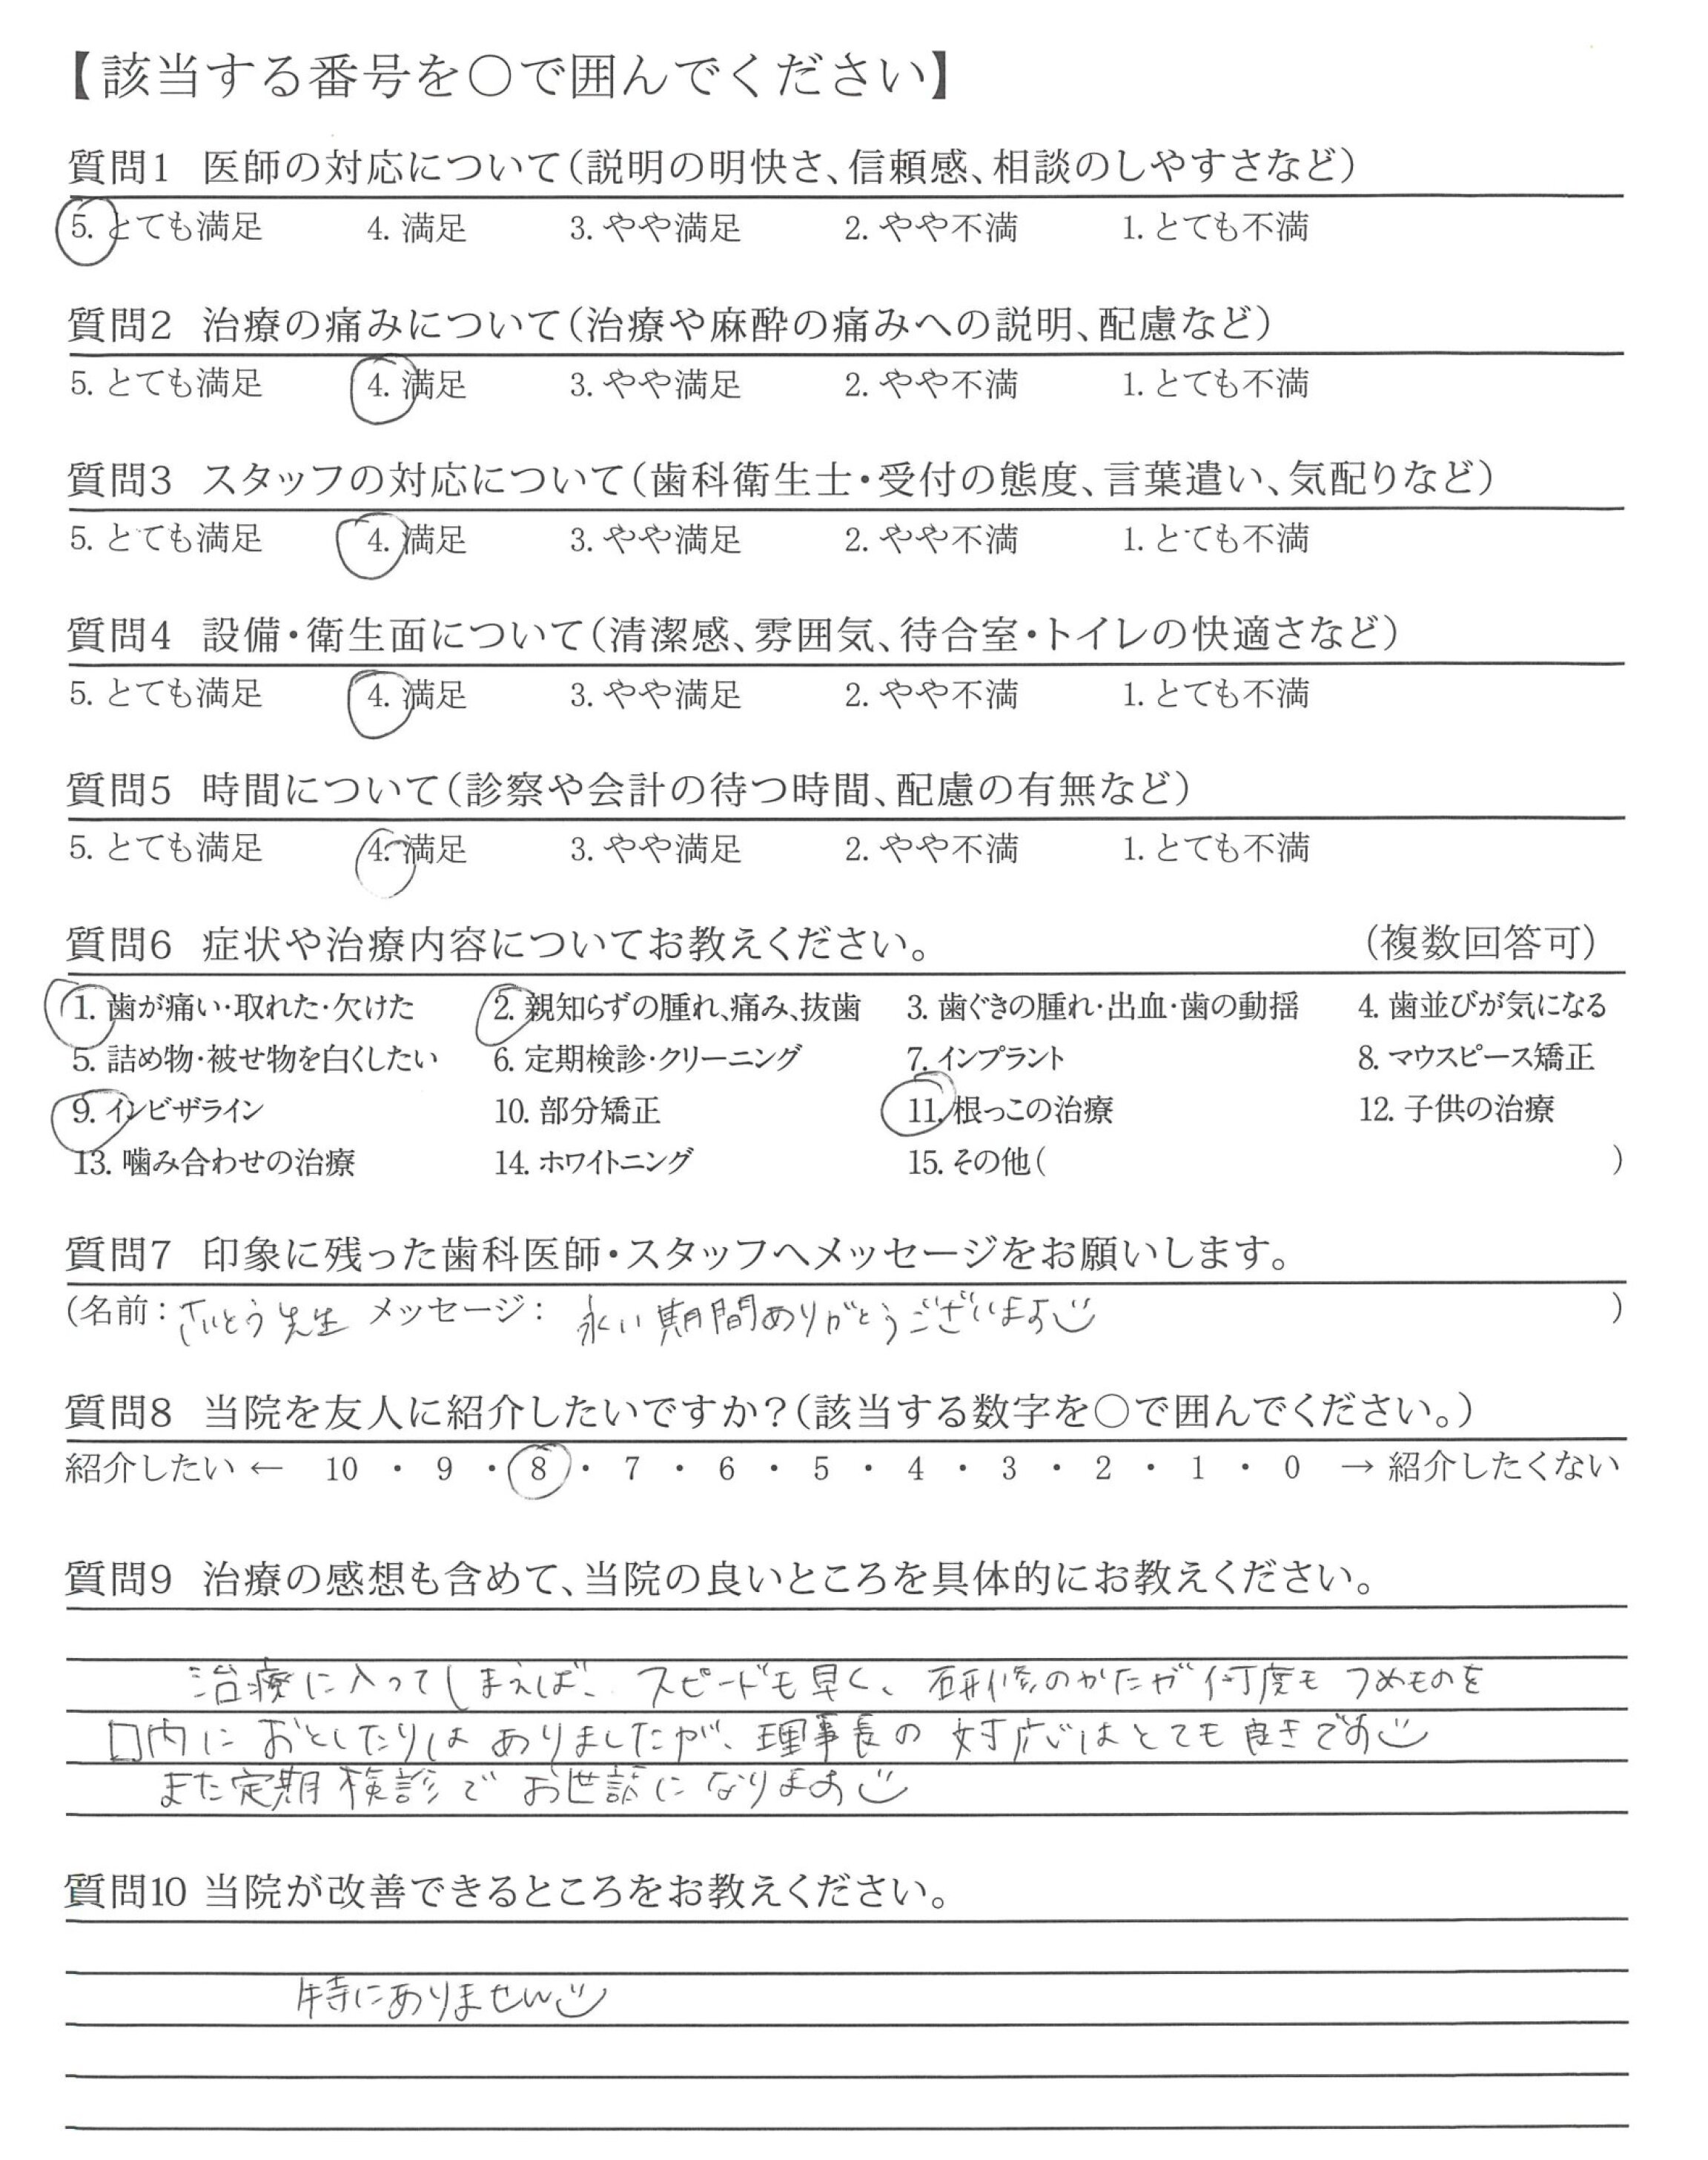 【該当する番号を○で囲んでください】
質問1 医師の対応について(説明の明快さ、信頼感、相談のしやすさなど)
5. とても満足 4. 満足 3. やや満足 2. やや不満 1. とても不満
質問2 治療の痛みについて(治療や麻酔の痛みへの説明、配慮など)
5. とても満足 4. 満足 3. やや満足 2. やや不満 1. とても不満
質問3 スタッフの対応について(歯科衛生士・受付の態度、言葉遣い、気配りなど)
5. とても満足 4. 満足 3. やや満足 2. やや不満 1. とても不満
質問4 設備・衛生面について(清潔感、雰囲気、待合室・トイレの快適さなど)
5. とても満足 4. 満足 3. やや満足 2. やや不満 1. とても不満
質問5 時間について(診察や会計の待つ時間、配慮の有無など)
5. とても満足 4. 満足 3. やや満足 2. やや不満 1. とても不満
質問6 症状や治療内容についてお教えください。 (複数回答可)
1. 歯が痛い・取れた・欠けた 2. 親知らずの腫れ、痛み、抜歯 3. 歯ぐきの腫れ・出血・歯の動揺 4. 歯並びが気になる
5. 詰め物・被せ物を白くしたい 6. 定期検診・クリーニング 7. インプラント 8. マウスピース矯正
9. インビザライン 10. 部分矯正 11. 根っこの治療 12. 子供の治療
13. 噛み合わせの治療 14. ホワイトニング 15. その他( )
質問7 印象に残った歯科医師・スタッフへメッセージをお願いします。
(名前：さいとう先生 メッセージ：永い期間ありがとうございます )
質問8 当院を友人に紹介したいですか？(該当する数字を○で囲んでください。)
紹介したい ← 10 ・ 9 ・ 8 ・ 7 ・ 6 ・ 5 ・ 4 ・ 3 ・ 2 ・ 1 ・ 0 → 紹介したくない
質問9 治療の感想も含めて、当院の良いところを具体的にお教えください。
治療に入ってしまえば、スピードも早く、研修のかたが何度もつめものを
口内におとしたりはありましたが、理事長の対応はとても良きです
また定期検診でお世話になります
質問10 当院が改善できるところをお教えください。
特にありません